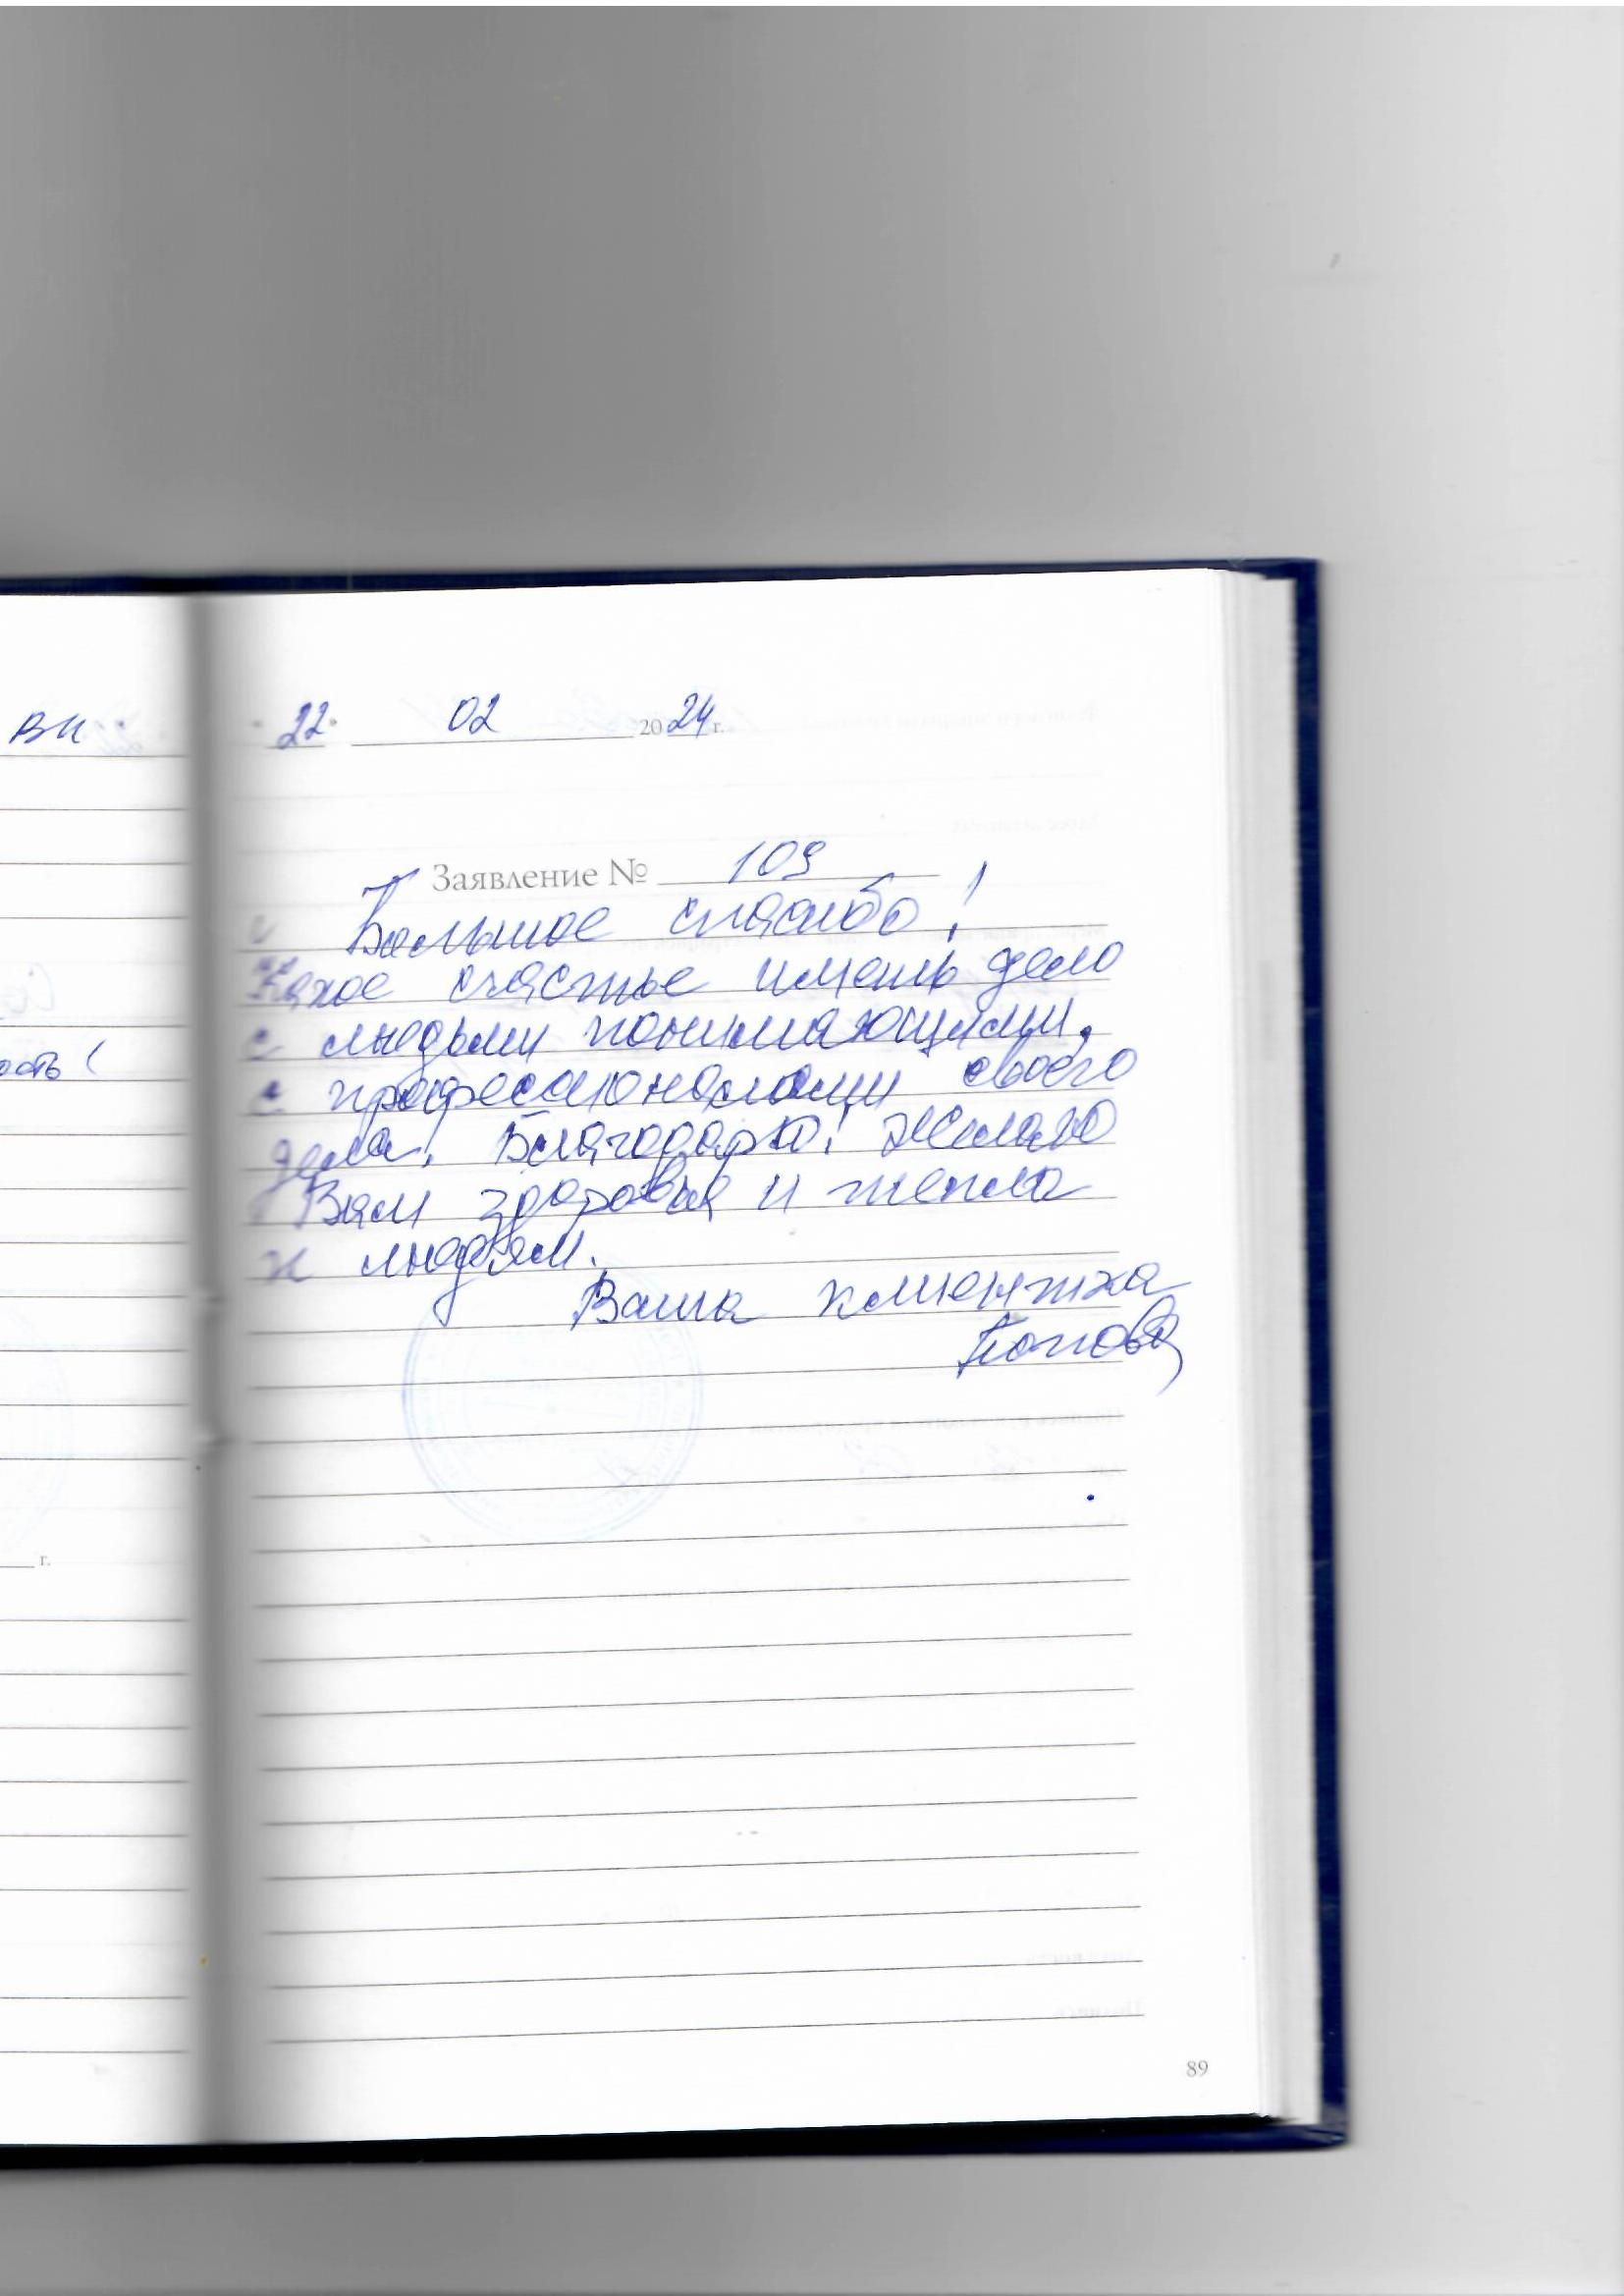 ВИ
"22" 02 2024 г.
Заявление № 109
Большое спасибо!
Какое счастье иметь дело
с людьми понимающими,
с профессионалами своего
дела. Благодарю! Желаю
Вам здоровья и тепла
к людям.
Ваша клиентка
Попова
ость!
г.
89